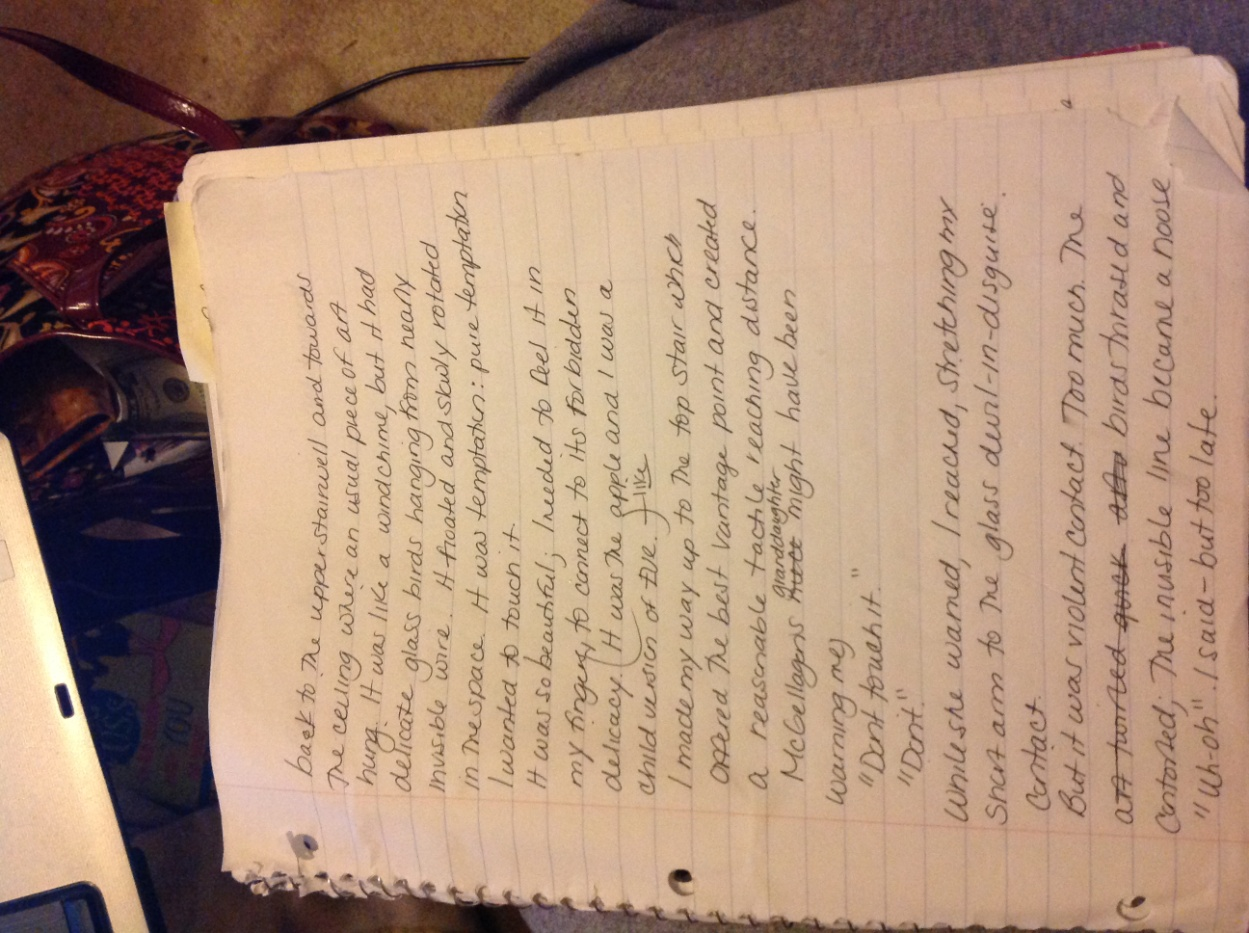 back to the upper stairwell and towards
the ceiling where an usual piece of art
hung. It was like a windchime, but it had
delicate glass birds hanging from nearly
invisible wire. It floated and slowly rotated
in the space. It was temptation: pure temptation
I wanted to touch it.
It was so beautiful; I needed to feel it in
my fingers, to connect to its forbidden
delicacy. (It was the apple and I was a
child version of Eve.) -like
I made my way up to the top stair which
offered the best vantage point and created
a reasonable tactile reaching distance.
granddaughter
McCellagn's might have been
warning me,
"Don't touch it."
"Don't."
While she warned, I reached, stretching my
short arm to the glass devil-in-disguise.
Contact.
But it was violent contact. Too much. The
art birds thrased and
contorsed; The invisible line became a noose
"Uh-oh". I said - but too late.
USS
YOU